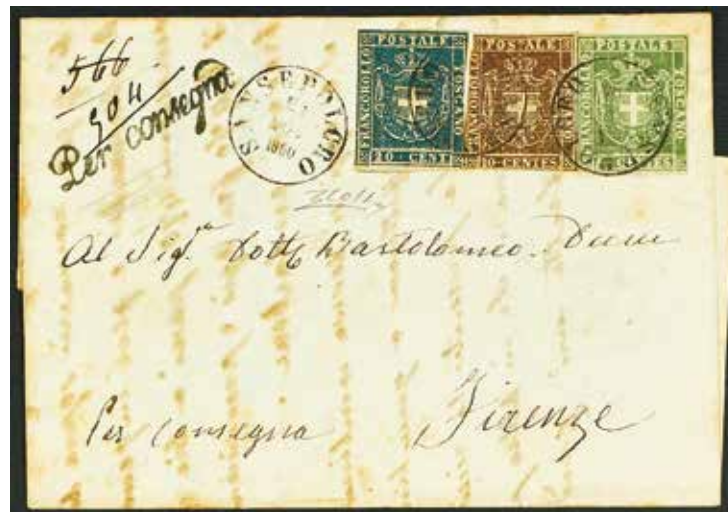 566
904
Per consegna
SANSEPOLCRO
1860
FRANCOBOLLO
POSTALE
TOSCANO
20 CENT
FRANCOBOLLO
POSTALE
TOSCANO
10 CENTES
FRANCOBOLLO
POSTALE
TOSCANO
CENTES
Al Sig.re Dott. Bartolomeo
Per consegna Firenze